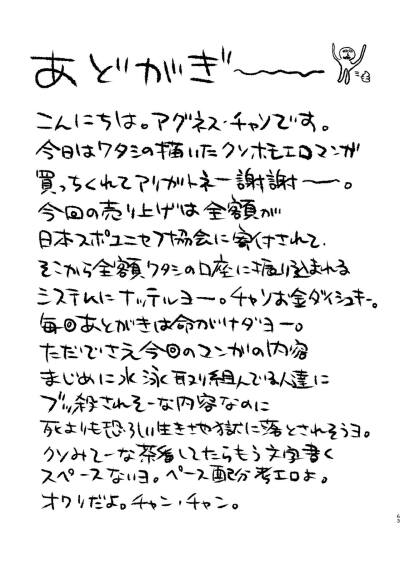 あどがぎ〜〜
こんにちは。アグネス・チャンです。
今日はワタシの描いたクソホモエロマンガ
買っちくれてアリガトネー謝謝ー。
今回の売り上げは全額が
日本スポユニセフ協会に寄付されて、
そこから全額ワタシの口座に振り込まれる
システムにナッテルヨー。チャンお金ダイシュキー。
毎回あとがきは命がけダヨー。
ただでさえ今回のマンガの内容
まじめに水泳取り組んでいる人達に
ブッ殺されそーな内容なのに
死よりも恐ろしい生き地獄に落とされそうヨ。
クソみてーな茶番してたらもう文字書く
スペースないヨ。ペース配分考エロよ。
オワリだよ。チャン・チャン。
63